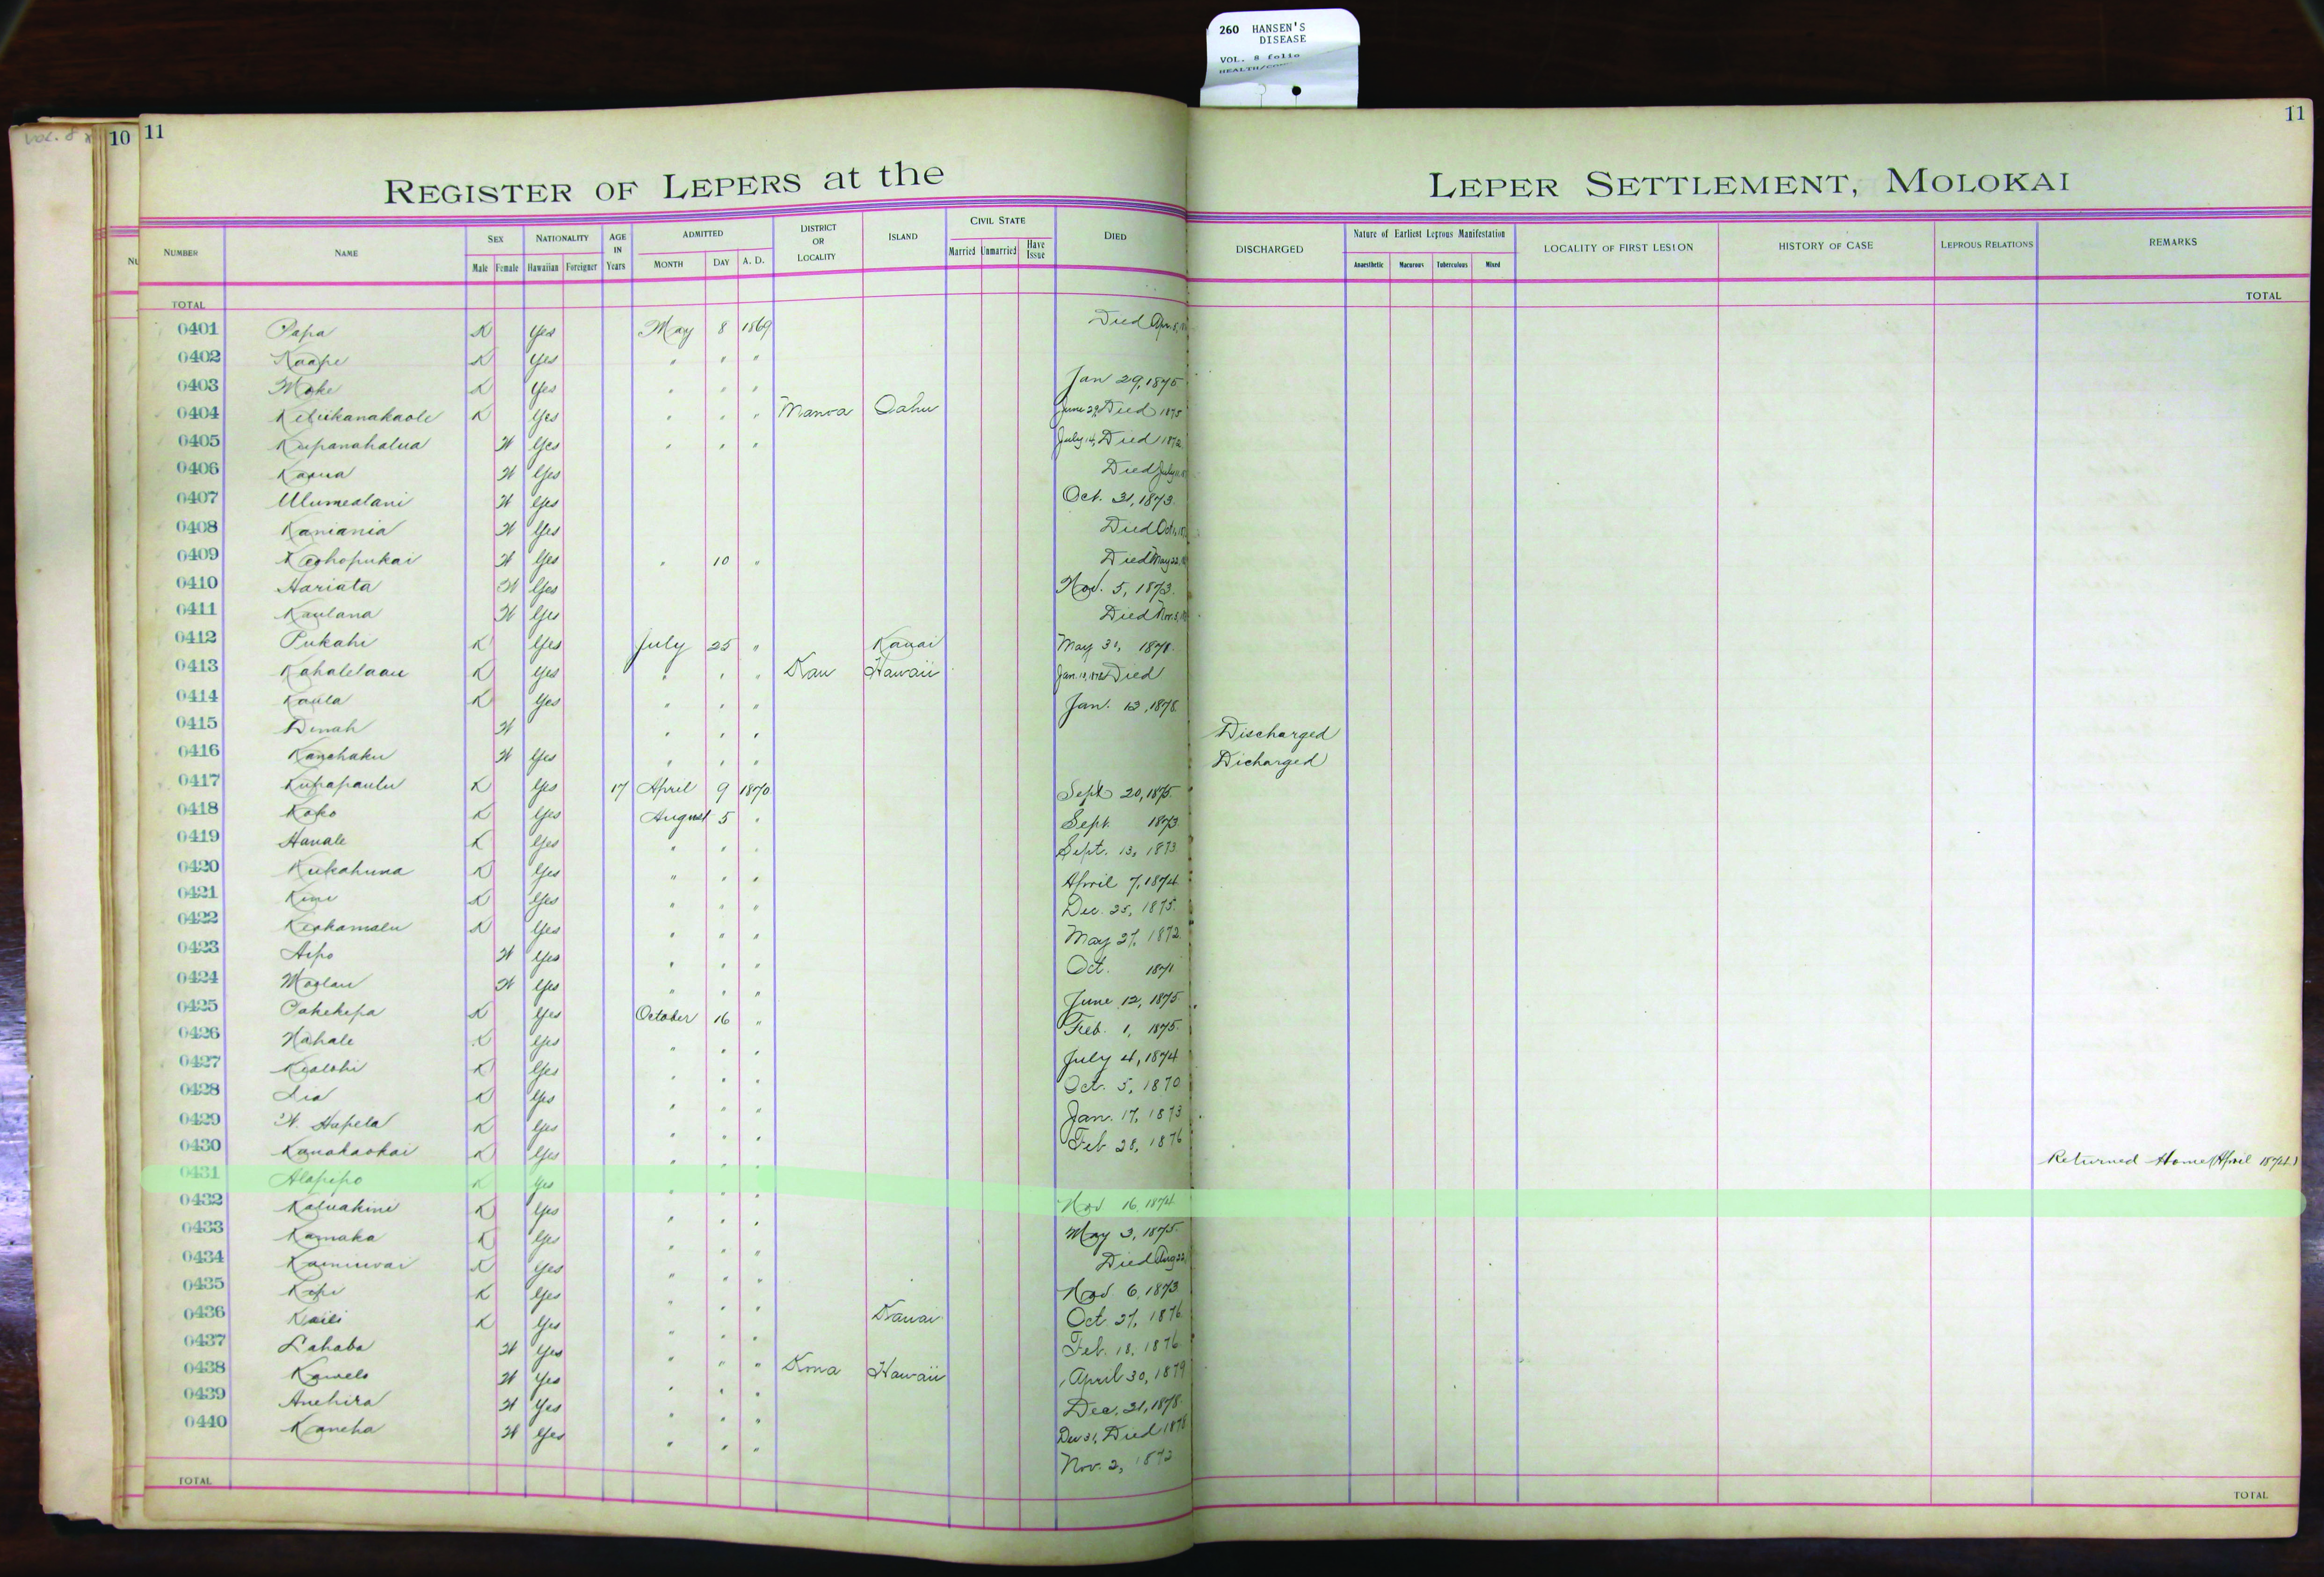 260 HANSEN'S
DISEASE
VOL. 8 folio
VOL. 8
10 11
11
REGISTER OF LEPERS at the LEPER SETTLEMENT, MOLOKAI
NUMBER NAME SEX Male Female NATIONALITY Hawaiian Foreigner AGE IN Years ADMITTED MONTH DAY A. D. DISTRICT OR LOCALITY ISLAND CIVIL STATE Married Unmarried Have Issue DIED DISCHARGED Nature of Earliest Leprous Manifestation Anaesthetic Macurous Tuberculous Mixed LOCALITY OF FIRST LESION HISTORY OF CASE LEPROUS RELATIONS REMARKS
TOTAL TOTAL
0401 Papa K Yes May 8 1869 Died Apr. 8,
0402 Kaape K Yes " " "
0403 Moke K Yes " " " Jan 29, 1875
0404 Keliikanakaole K Yes " " " Manoa Oahu June 29, Died 1875
0405 Kupanahalua W Yes " " " July 14, Died 1872
0406 Kaoua W Yes Died July
0407 Ulumealani W Yes Oct. 31, 1873.
0408 Kamania W Yes Died Oct.
0409 Keohopukai W Yes " 10 " Died May 22,
0410 Hariata W Yes Nov. 5, 1873.
0411 Kaulana W Yes Died Nov. 3,
0412 Pukahi K Yes July 25 " Kauai May 31, 1878.
0413 Kahalelaau K Yes " " " Kau Hawaii Jan. Died
0414 Kaula K Yes " " " Jan. 12, 1878.
0415 Dinah W " " " Discharged
0416 Kanehaku W Yes " " " Dicharged
0417 Kupapaulu K Yes 17 April 9 1870 Sept 20, 1875.
0418 Koko K Yes August 5 " Sept. 1873
0419 Hanale K Yes " " " Sept. 13, 1873
0420 Kukahuna K Yes " " " April 7, 1874
0421 Kimi K Yes " " " Dec. 25, 1875.
0422 Keohamalu K Yes " " " May 27, 1872
0423 Aipo W Yes " " " Oct. 1871
0424 Moolau W Yes " " " June 12, 1875
0425 Pahekepa K Yes October 16 " Feb. 1, 1875.
0426 Nahale K Yes " " " July 4, 1874
0427 Kealohi K Yes " " " Oct. 5, 1870
0428 Lia K Yes " " " Jan. 17, 1873
0429 W. Hapela K Yes " " " Feb 28, 1876
0430 Kanakaokai K Yes " " " Returned Home (April 1874.)
0431 Alapipo K Yes " " " Nov 16, 1874
0432 Kaluakini K Yes " " " May 3, 1875.
0433 Kamaka K Yes " " " Died Aug 22,
0434 Kaminwai K Yes " " " Nov. 6, 1873
0435 Kepi K Yes " " " Oct. 27, 1876
0436 Kaili K Yes " " " Kauai Feb. 18, 1876
0437 Lahaba W Yes " " " April 30, 1879
0438 Kawelo W Yes " " " Kona Hawaii Dec. 31, 1878.
0439 Anehira W Yes " " " Dec 31, Died 1878
0440 Kaneha W Yes " " " Nov. 2, 1872
TOTAL TOTAL